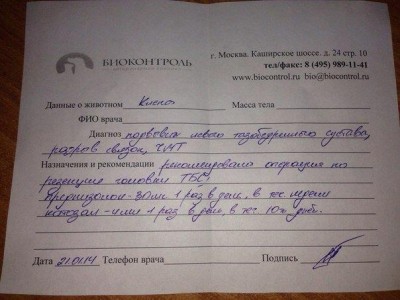 БИОКОНТРОЛЬ
г. Москва. Каширское шоссе. д. 24 стр. 10
тел/факс: 8 (495) 989-11-41
www.biocontrol.ru bio@biocontrol.ru
Данные о животном Масса тела
ФИО врача
Диагноз подвывих левого тазобедренного сустава,
разрыв связок, ЧМТ
Назначения и рекомендации рекомендована операция по
резекции головки ТБС.
1 раз в день, в теч. недели
1 раз в день, в теч. 10ти дней.
Дата 21.01.14 Телефон врача Подпись